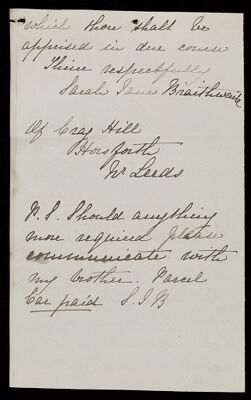 which thou shalt be
apprised in due course
Thine respectfully
Sarah Jane Braithwaite
Of Crag Hill
Horsforth
Nr Leeds
P.S. Should anything
more required please
communicate with
my brother. Parcel
Car paid S.J.B